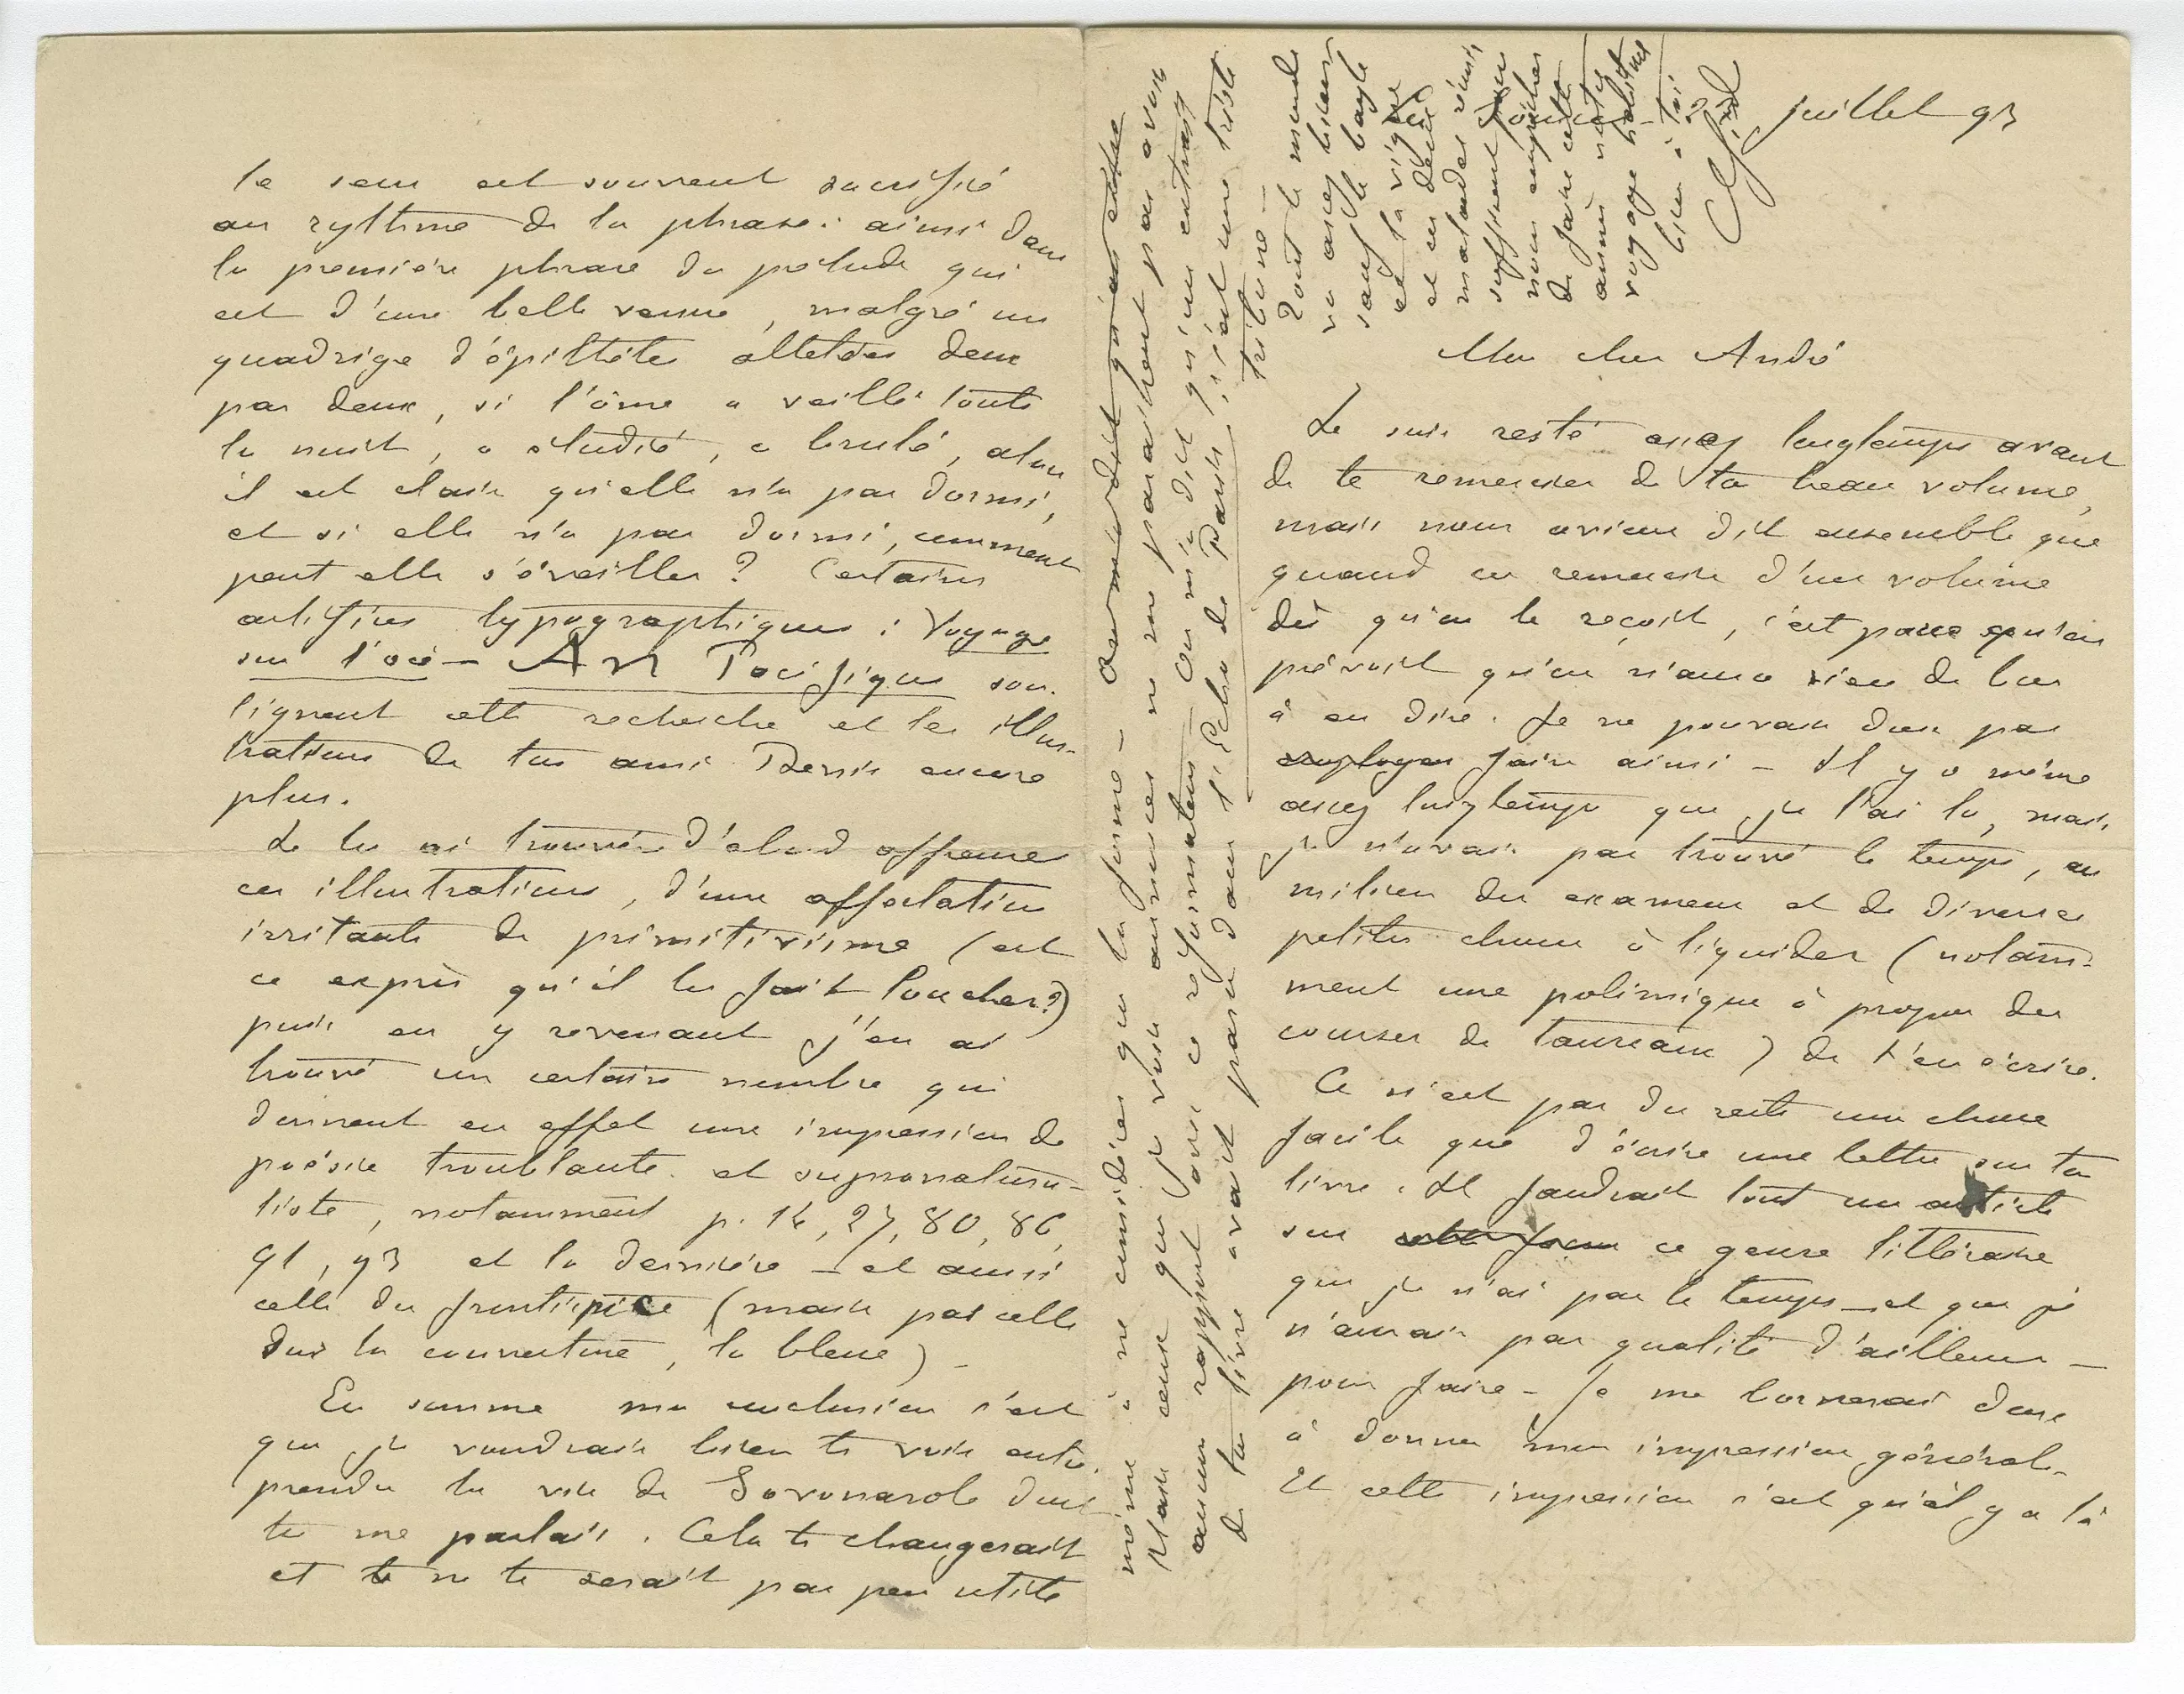 juillet 93
Mon cher André
Je suis resté assez longtemps avant
de te remercier de ton beau volume,
mais nous avions dit ensemble que
quand on remercie d'un volume
dès qu'on le reçoit, c'est parce qu'on
prévoit qu'on n'aura rien de bon
à en dire. Je ne pouvais donc pas
employer faire ainsi – Il y a même
assez longtemps que je l'ai lu, mais
je n'avais pas trouvé le temps, au
milieu des examens et de diverses
petites choses à liquider (notam-
ment une polimique à propos des
courses de taureaux) de t'en écrire.
Ce n'est pas du reste une chose
facile que d'écrire une lettre sur ton
livre. Il faudrait tout un article
sur cette forme ce genre littéraire
que je n'ai pas le temps – et que je
n'aurais pas qualité d'ailleurs –
pour faire – Je me bornerai donc
à donner mon impression générale –
Et cette impression c'est qu'il y a là
le sens est souvent sacrifié
au rythme de la phrase: ainsi dans
la première phrase du prélude qui
est d'une belle venue, malgré un
quadrige d'épithètes attelées deux
par deux, si l'âme a veillé toute
la nuit, a étudié, a brulé, alors
il est clair qu'elle n'a pas dormi,
et si elle n'a pas dormi, comment
peut elle s'éveiller? Certains
artifices typographiques: Voyage
sur l'océ – AN Pacifique sou-
lignent cette recherche et les illus-
trations de ton ami Denis encore
plus.
Je les ai trouvées d'abord affreuses
ces illustrations, d'une affectation
irritante de primitivisme (est
ce exprès qu'il les fait loucher?)
puis en y revenant j'en ai
trouvé un certain nombre qui
donnent en effet une impression de
poésie troublante et supranatura-
liste, notamment p. 14, 27, 80, 86,
91, 93 et la dernière – et aussi
celle du frontispice (mais pas celle
sur la couverture, la bleue) –
En somme ma conclusion c'est
que je voudrais bien te voir entre-
prendre la vie de Savonarole dont
tu me parlais. Cela te changerait
et ne te serait pas peu utile
même à ne considérer que la forme –
Mais ceux que je vois annoncés ne me paraissent pas avoir
aucun rapport avec ce réformateur – On m'a dit qu'un extrait
de ton livre avait paru dans l'Echo de Paris, c'est une triste
tribune –
Tout le monde
va assez bien
sauf
et la vigne
et ces deux
malades réunis
suffisent pour
nous empêcher
de faire cette
année notre
voyage habituel
bien à toi
Gide